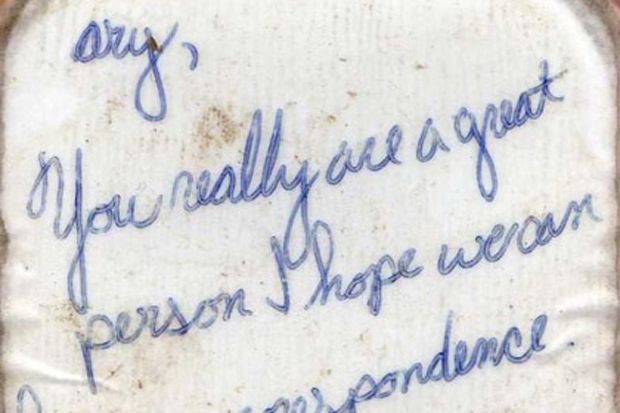 ary,
You really are a great
person I hope we can
respondence.